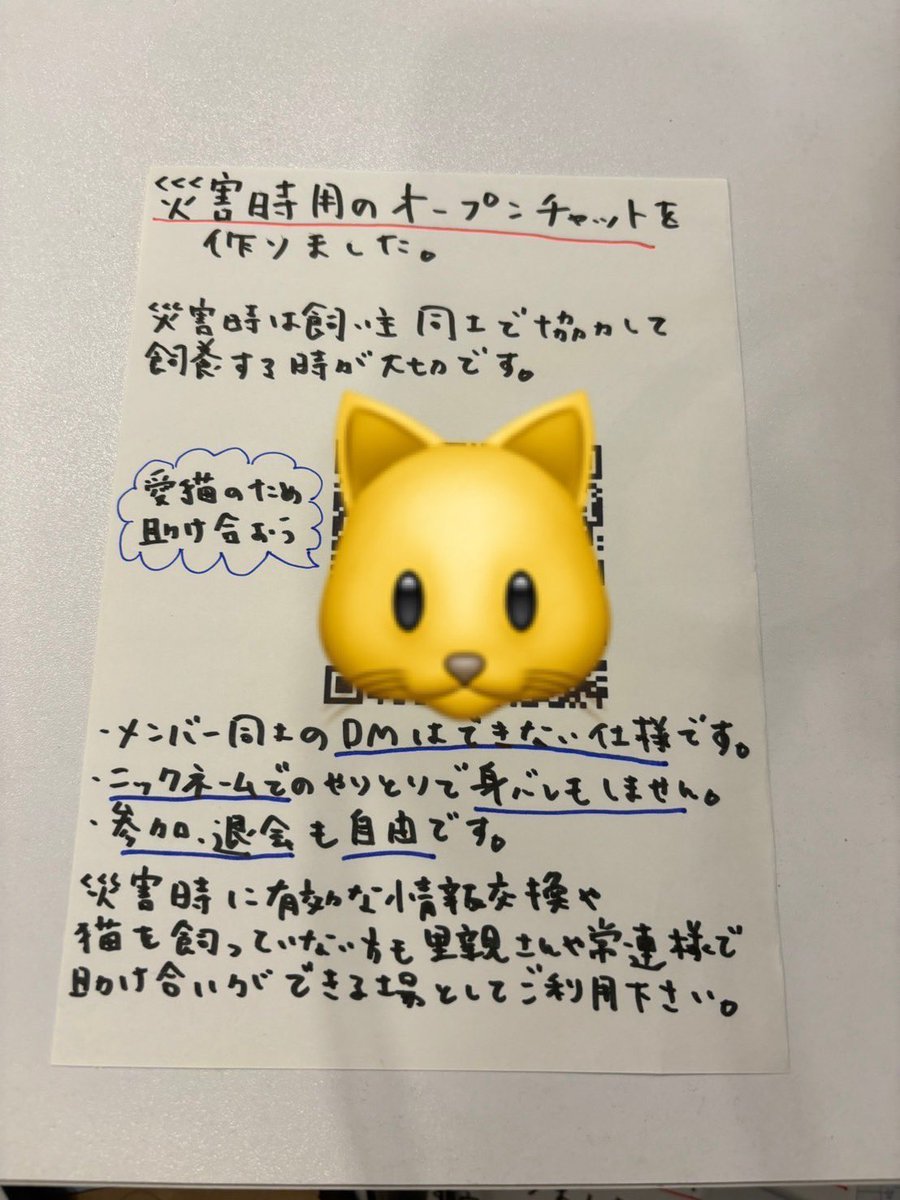 災害時用のオープンチャットを
作りました。
災害時は飼い主同士で協力して
飼養する時が大切です。
愛猫のため
助け合おう
・メンバー同士のDMはできない仕様です。
・ニックネームでのやりとりで身バレもしません。
・参加、退会も自由です。
災害時に有効な情報交換や
猫を飼っていない方も里親さんや常連様で
助け合いができる場としてご利用下さい。